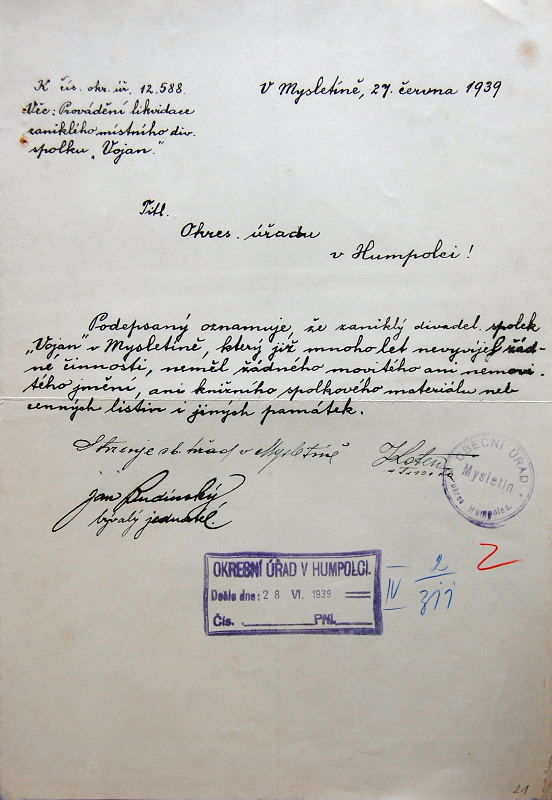 K čís. okr. úř. 12.588.
V Mysletíně, 27. června 1939
Věc: Provádění likvidace
zaniklého místního div.
spolku „Vojan."
Titl.
Okres. úřadu
v Humpolci!
Podepsaný oznamuje, že zaniklý divadel. spolek
„Vojan" v Mysletíně, který již mnoho let nevyvíjel žád-
né činnosti, neměl žádného movitého ani nemovi-
tého jmění, ani knižního spolkového materiálu neb
cenných listin i jiných památek.
úřad v Mysletíně
OBECNÍ ÚŘAD
Mysletín
okres Humpolec.
Jan
bývalý jednatel.
OKRESNÍ ÚŘAD V HUMPOLCI.
Došlo dne: 28. VI. 1939
Čís. Příl.
IV 2
21